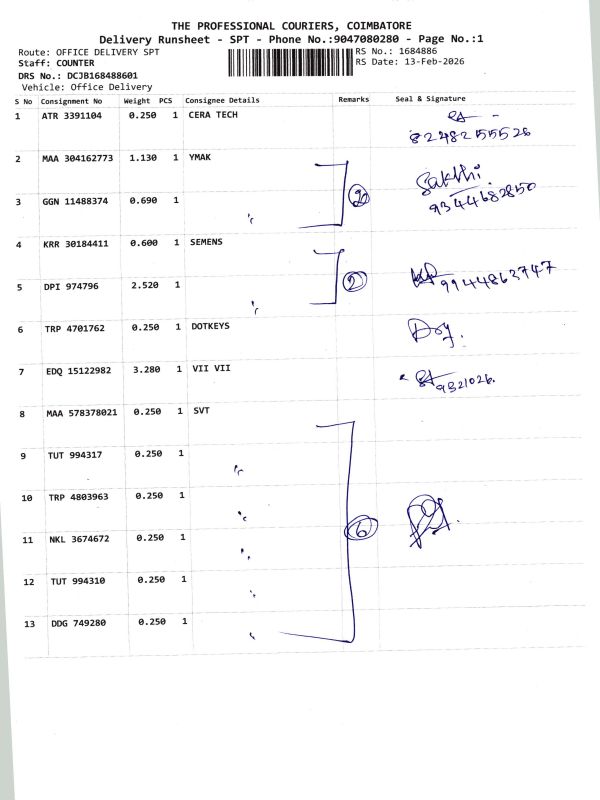 THE PROFESSIONAL COURIERS, COIMBATORE
Delivery Runsheet - SPT - Phone No.:9047080280 - Page No.:1
Route: OFFICE DELIVERY SPT RS No.: 1684886
Staff: COUNTER RS Date: 13-Feb-2026
DRS No.: DCJB168488601
Vehicle: Office Delivery
S No Consignment No Weight PCS Consignee Details Remarks Seal & Signature
1 ATR 3391104 0.250 1 CERA TECH
8248255526
2 MAA 304162773 1.130 1 YMAK Sakthi.
3 GGN 11488374 0.690 1 " 2 9344682850
4 KRR 30184411 0.600 1 SEMENS
5 DPI 974796 2.520 1 " 2 9944863747
6 TRP 4701762 0.250 1 DOTKEYS
7 EDQ 15122982 3.280 1 VII VII 9321026.
8 MAA 578378021 0.250 1 SVT
9 TUT 994317 0.250 1 "
10 TRP 4803963 0.250 1 "
11 NKL 3674672 0.250 1 " 6
12 TUT 994310 0.250 1 "
13 DDG 749280 0.250 1 "